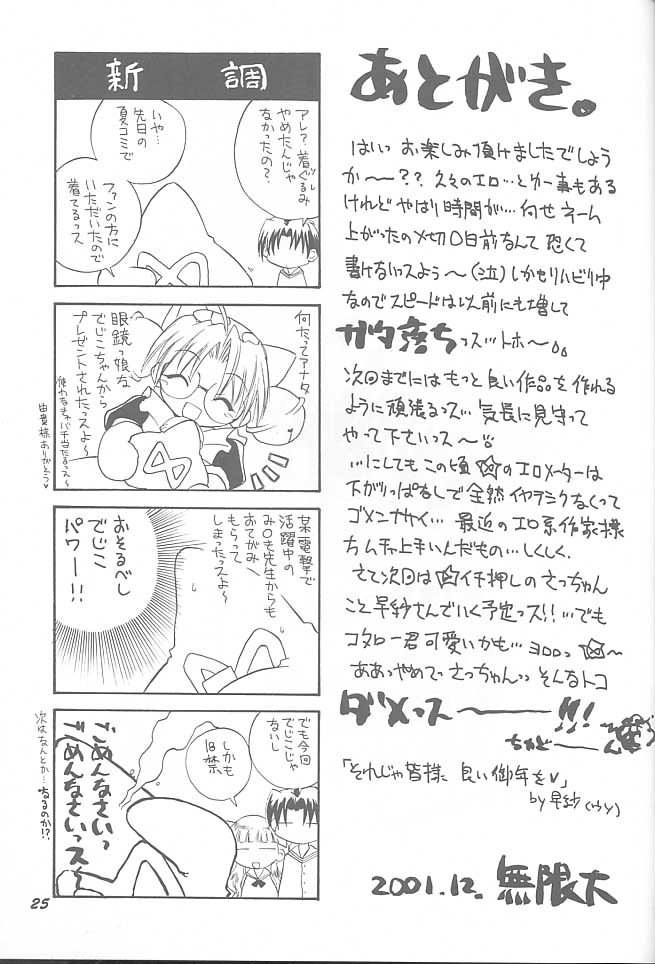 あとがき。
はいっ お楽しみ頂けましたでしょう
か〜〜?? 久々のエロ…とゆー事もある
けれど やはり時間が…何せネーム
上がったの〆切〇日前なんて 恐くて
書けないっスよう〜(泣)しかもリハビリゆ
なのでスピードは以前にも増して
ガタ落ちっス…トホ〜
次回までにはもっと良い作品を作れる
ように頑張るっス…気長に見守って
やって下さいっス〜
…にしてもこの頃 のエロメーターは
下がりっぱなしで全然イヤラシクなくって
ゴメンナサイ… 最近のエロ系作家様
ムチャ上手いんだもの…しくしく。
さて次回は イチ押しのさっちゃん
こと早紗さんでいく予定っス!!…でも
コタロー君可愛いかも…ヨロロッ 〜
ああっやめてっさっちゃんっっ そんなトコ
ダメっスーーー!!!
ちゅどーーん
「それじゃ皆様 良い御年を♥」
by 早紗
2001.12. 無限大
新調
アレ?着ぐるみ
やめたんじゃ
なかったの?
いや…
先日の
夏コミで
ファンの方に
いただいたので
着てるっス
何たってアナタ
眼鏡っ娘な
でじこちゃんから
プレゼントされたっスよ〜
使わなきゃバチ当たるっス〜
由貴様ありがとう♥
某電撃で
活躍中の
み〇も先生からも
おてがみ
もらって
しまったっスよ〜
おそるべし
でじこ
パワー!!
でも今回
でじこじゃ
ないし
しかも
18禁
ごめんなさいっ
ごめんなさいっス
次はなんとか…なるのか!?
25